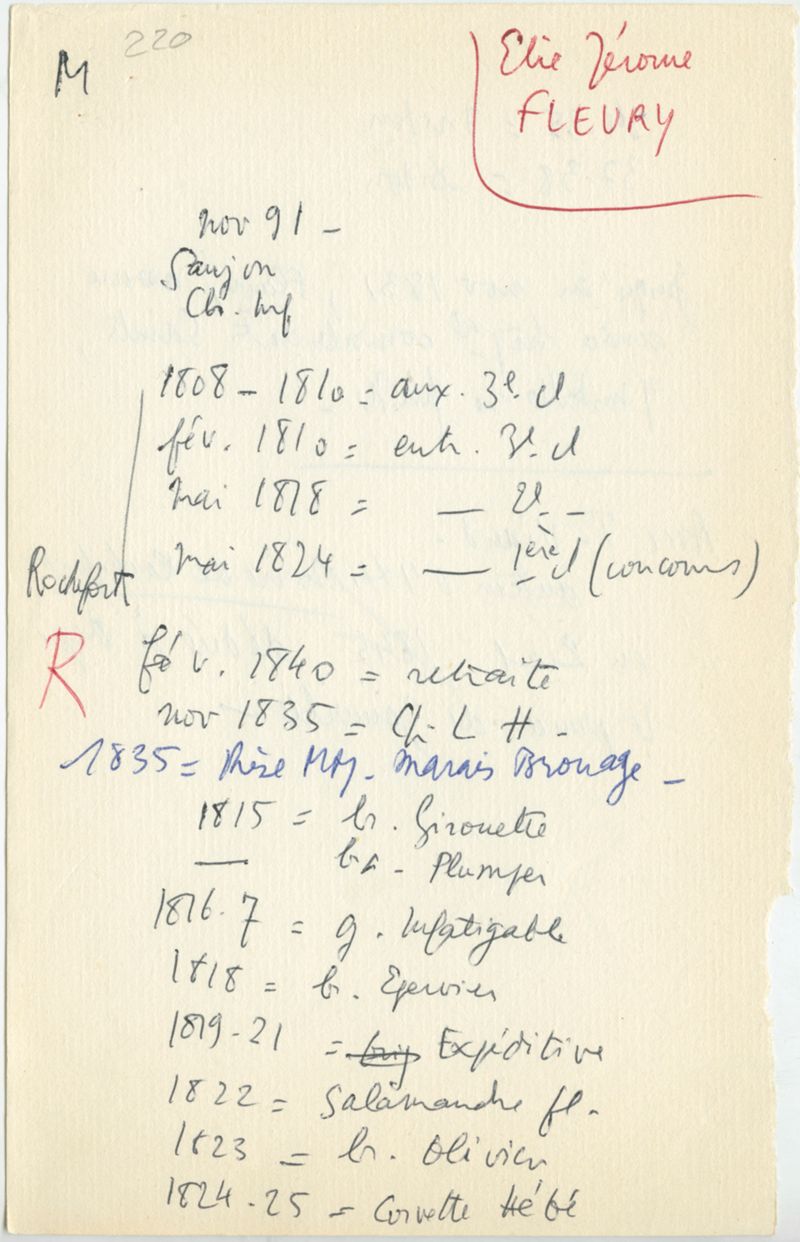 220
M
Elie Jérome
FLEURY
nov 91 -
Saujon
Chi. Inf
1808 - 1810 = aux. 3e. cl
fév. 1810 = entr. 3e. cl
mai 1818 = — 2e. -
mai 1824 = — 1ère cl (concours)
Rochefort
R
fév. 1840 = retraite
nov 1835 = Ch. L H -
1835 = thèse MM - Marais Brouage -
1815 = br. Girouette
— br - Plumper
1816-7 = g. Infatigable
1818 = b. Epervier
1819-21 = brig Expéditive
1822 = Salamandre fl.
1823 = br. Olivier
1824-25 = Corvette Hébé